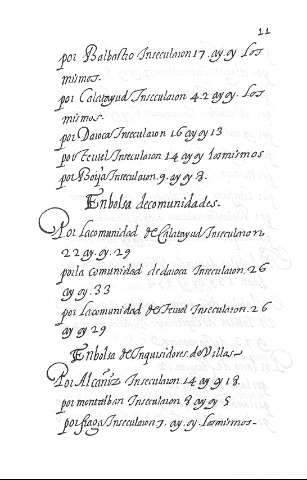 11
por Balbastro Insecularon 17. ay. oy Los
mismos.
por Calatayud Insecularon 42 ay oy. Los
mismos.
por Daroca Insecularon 16 ay oy 13
por Teruel Inseculaton 14 ay oy los mismos
por Borja Inseculaton. 9. ay oy 8.
En bolsa de comunidades.
Por La comunidad de Calatayud Inseculaton
22 ay. oy. 29
por la comunidad de daroca Inseculaton. 26
ay oy. 33
por La comunidad de Teruel Inseculaton. 26
ay oy 29
En bolsa de Inquisidores de Villas
Por Alcañiz Inseculaton 14 ay oy 18.
por montalban Inseculaton 8 ay oy 5
por fraga Inseculaton 7. ay. oy los mismos.